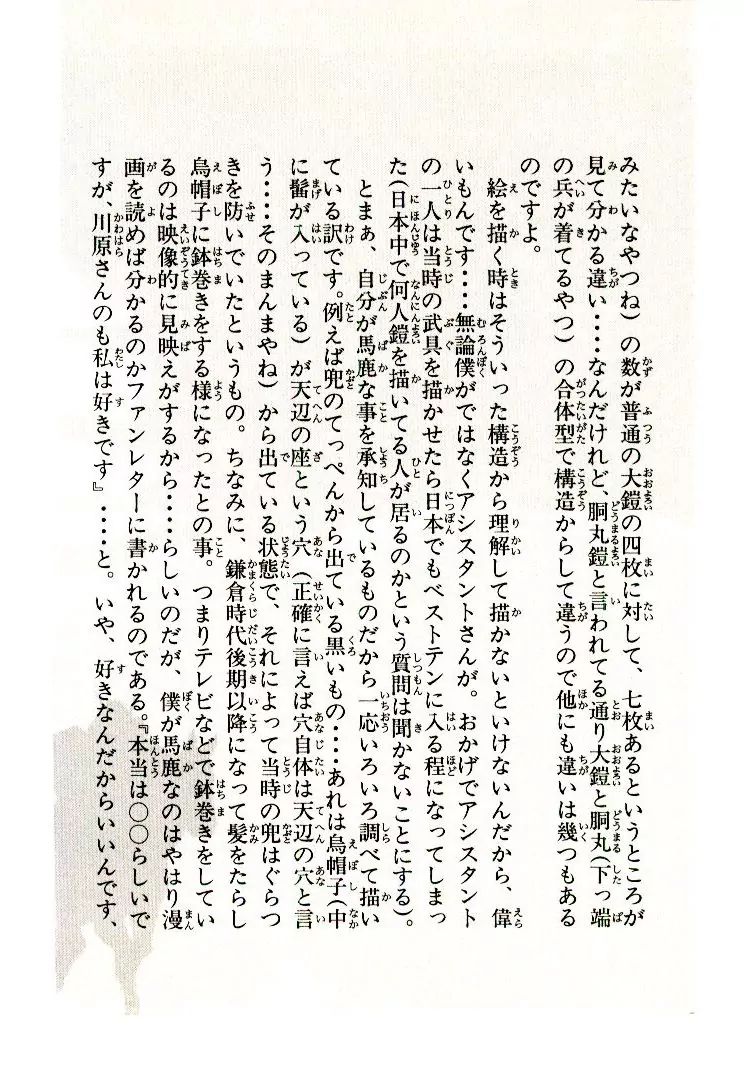 みたいなやつね）の数が普通の大鎧の四枚に対して、七枚あるというところが
見て分かる違い‥‥なんだけれど、胴丸鎧と言われてる通り大鎧と胴丸（下っ端
の兵が着てるやつ）の合体型で構造からして違うので他にも違いは幾つもある
のですよ。
絵を描く時はそういった構造から理解して描かないといけないんだから、偉
いもんです‥‥無論僕がではなくアシスタントさんが。おかげでアシスタント
の一人は当時の武具を描かせたら日本でもベストテンに入る程になってしまっ
た（日本中で何人鎧を描いてる人が居るのかという質問は聞かないことにする）。
とまぁ、自分が馬鹿な事を承知しているものだから一応いろいろ調べて描い
ている訳です。例えば兜のてっぺんから出ている黒いもの‥‥あれは烏帽子（中
に髷が入っている）が天辺の座という穴（正確に言えば穴自体は天辺の穴と言
う‥‥そのまんまやね）から出ている状態で、それによって当時の兜はぐらつ
きを防いでいたというもの。ちなみに、鎌倉時代後期以降になって髪をたらし
烏帽子に鉢巻きをする様になったとの事。つまりテレビなどで鉢巻きをしてい
るのは映像的に見映えがするから‥‥らしいのだが、僕が馬鹿なのはやはり漫
画を読めば分かるのかファンレターに書かれるのである。『本当は〇〇らしいで
すが、川原さんのも私は好きです』‥‥と。いや、好きなんだからいいんです、